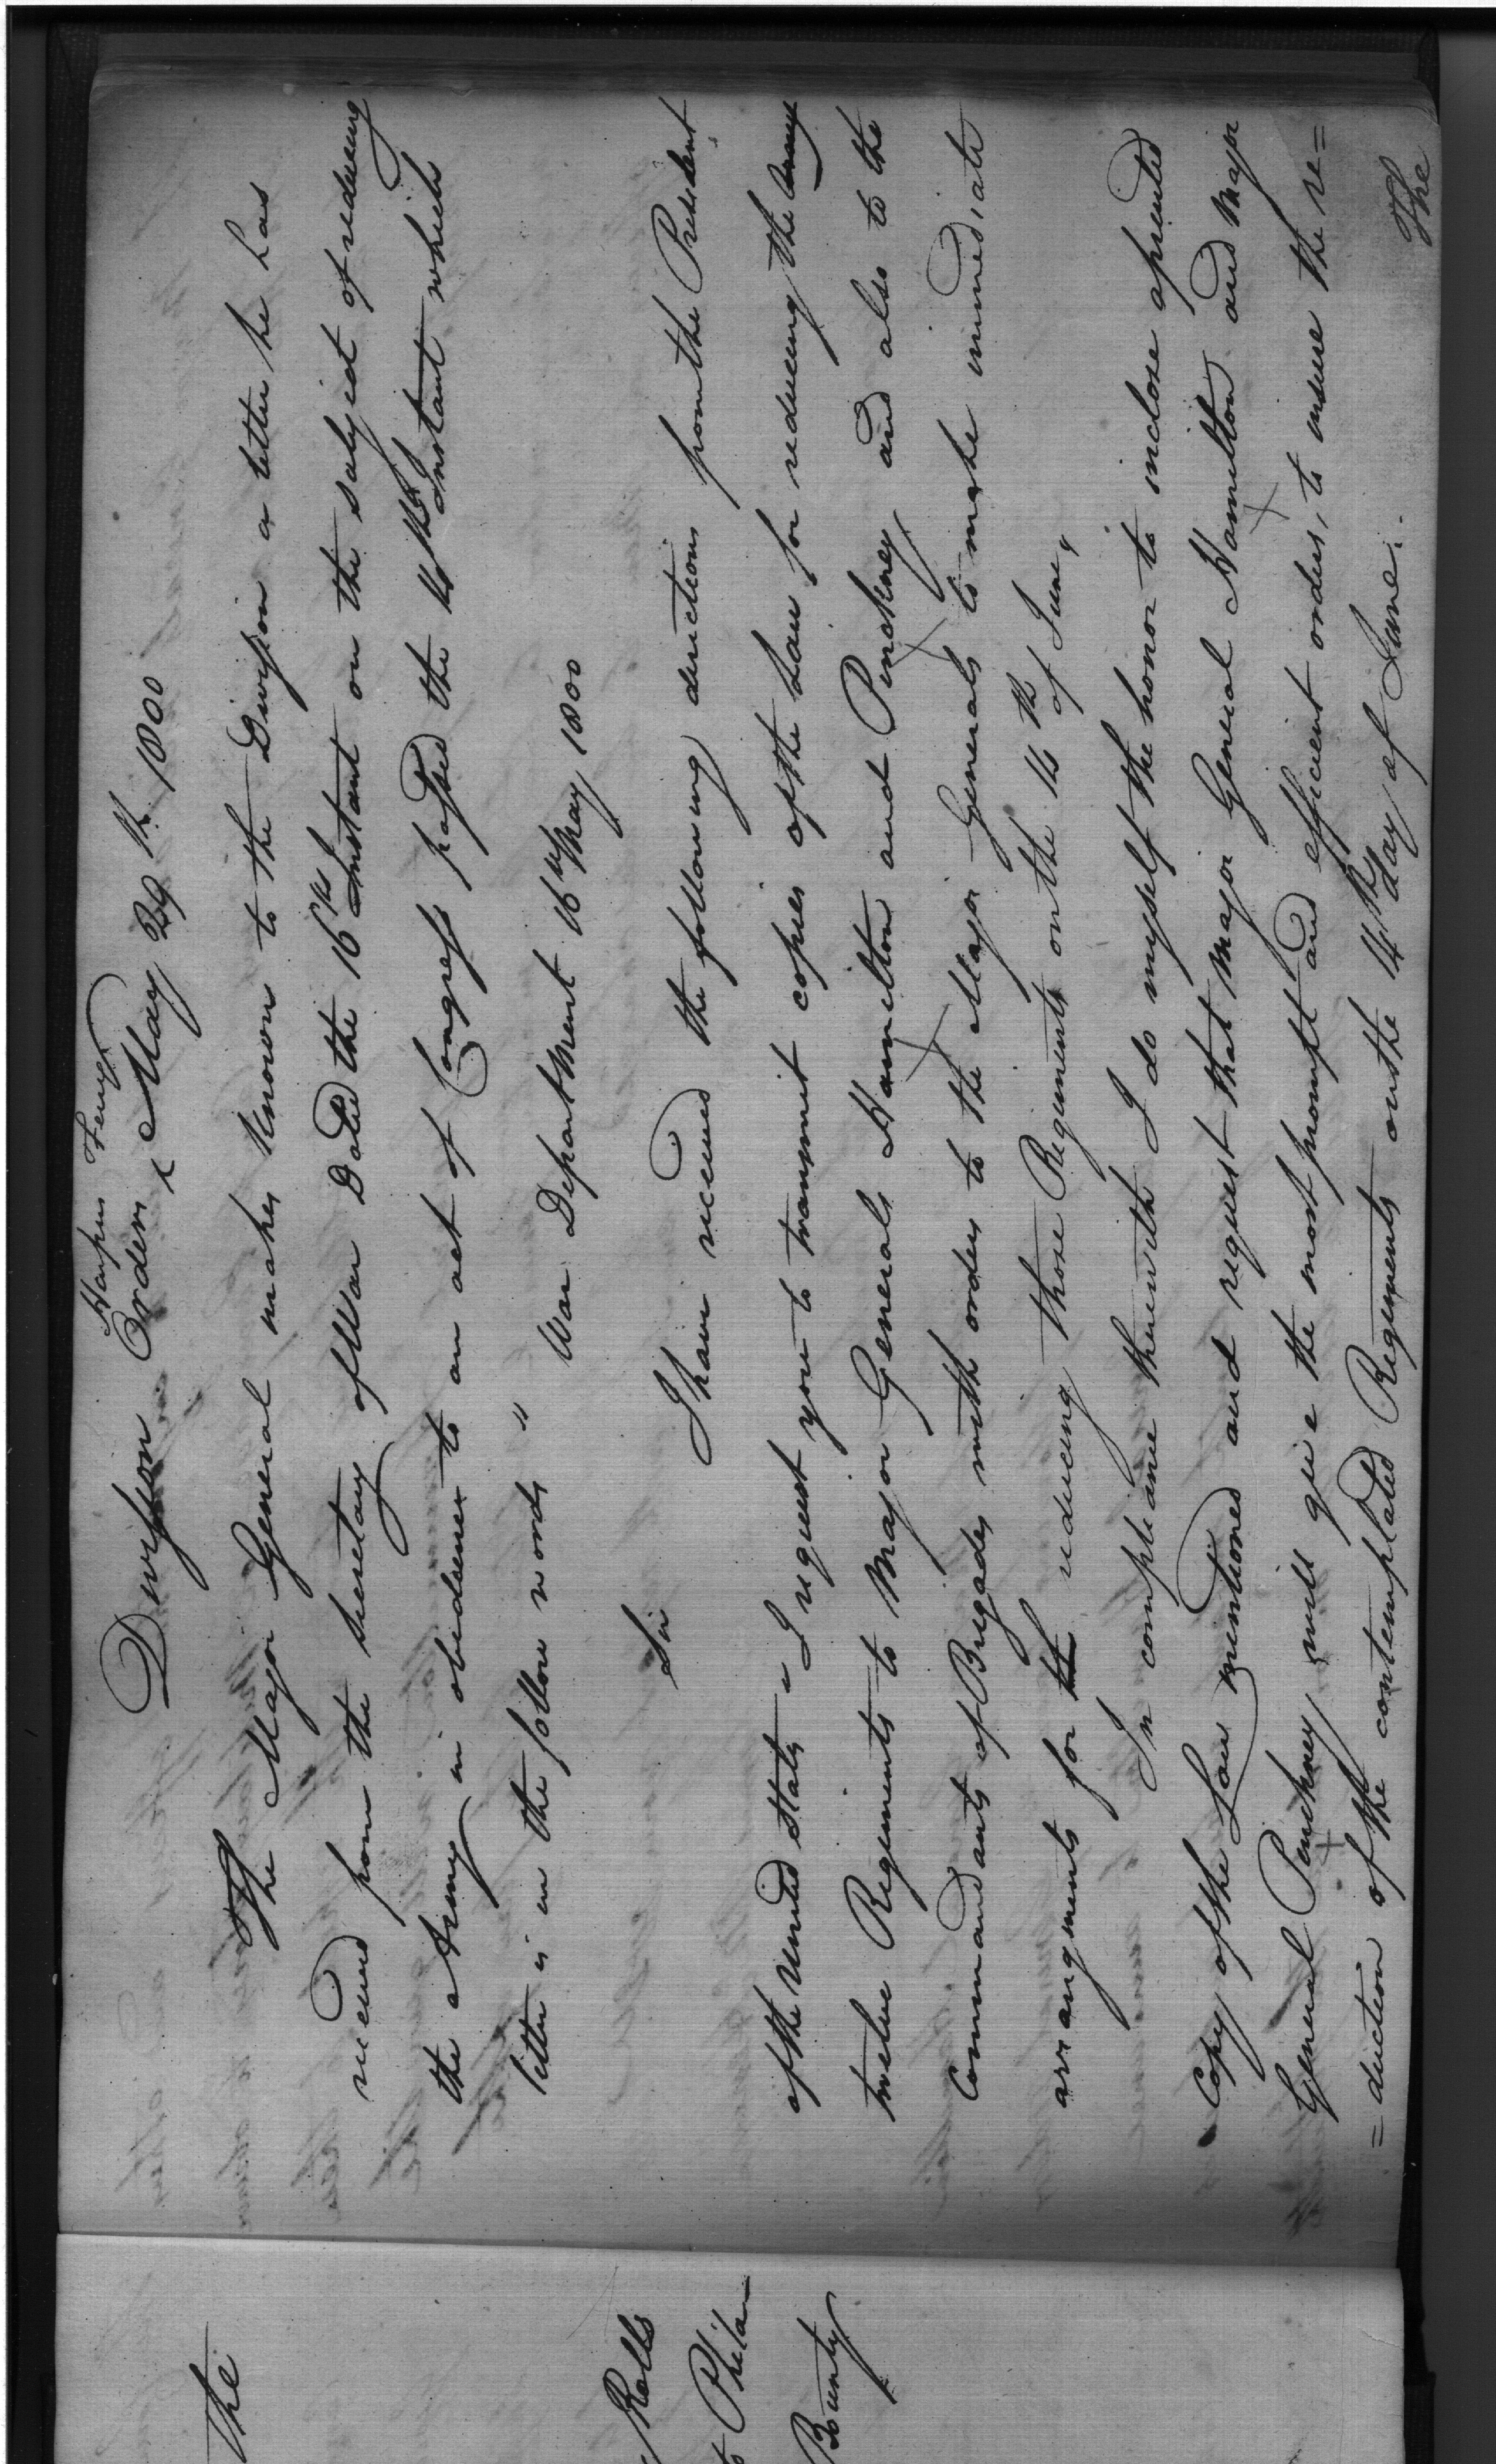 Harpers Ferry
Division Orders May 29th. 1800
The Major General makes known to the Division a letter he has
received from the secretary of War Dated the 16th Instant on the subject of reducing
the Army in obedience to an act of Congress passed the 14th Instant which
letter is in the follow words "
War Department 16th May 1800
Sir
I have received the following directions from the President
of the United States " I request you to transmit copies of the Law for reducing the Army
twelve Regiments to Major Generals Hamilton and Pinckney and also to the
Commandants of Brigades with orders to the Major Generals to make immediate
arrangements for the reducing those Regiments on the 14th of June "
In compliance therewith I do myself the honor to inclose a printed
Copy of the Law mentioned and request that Major General Hamilton and Major
General Pinckney will give the most prompt and efficient orders, to insure the re=
=duction of the contemplated Regiments on the 14th day of June.
The
the
Rolls
Phila
Bounty